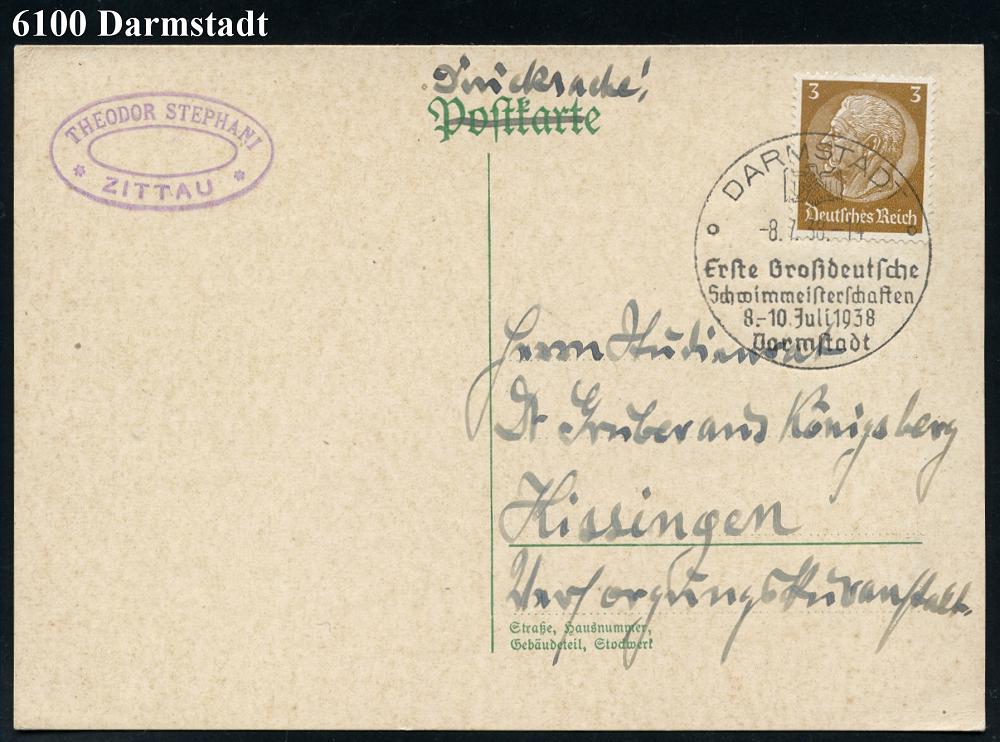 6100 Darmstadt
Drucksache!
Postkarte
THEODOR STEPHANI
ZITTAU
3 3
Deutsches Reich
DARMSTADT
-8.7.38.-14
Erste Großdeutsche
Schwimmeisterschaften
8.-10.Juli 1938
Darmstadt
Herrn Studienrat
Dr Gruber aus Königsberg
Kissingen
Versorgungskuranstalt.
Straße, Hausnummer,
Gebäudeteil, Stockwerk